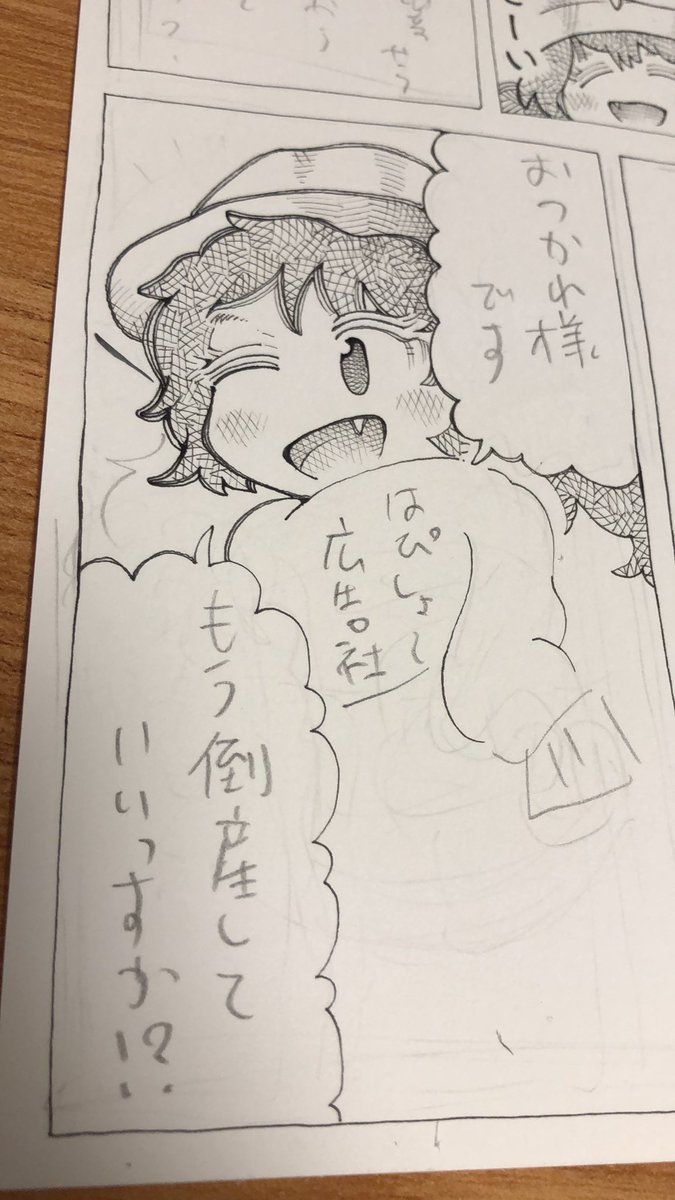 おつかれ様
です
はぴしょく
広告社
もう倒産して
いいっすか!?